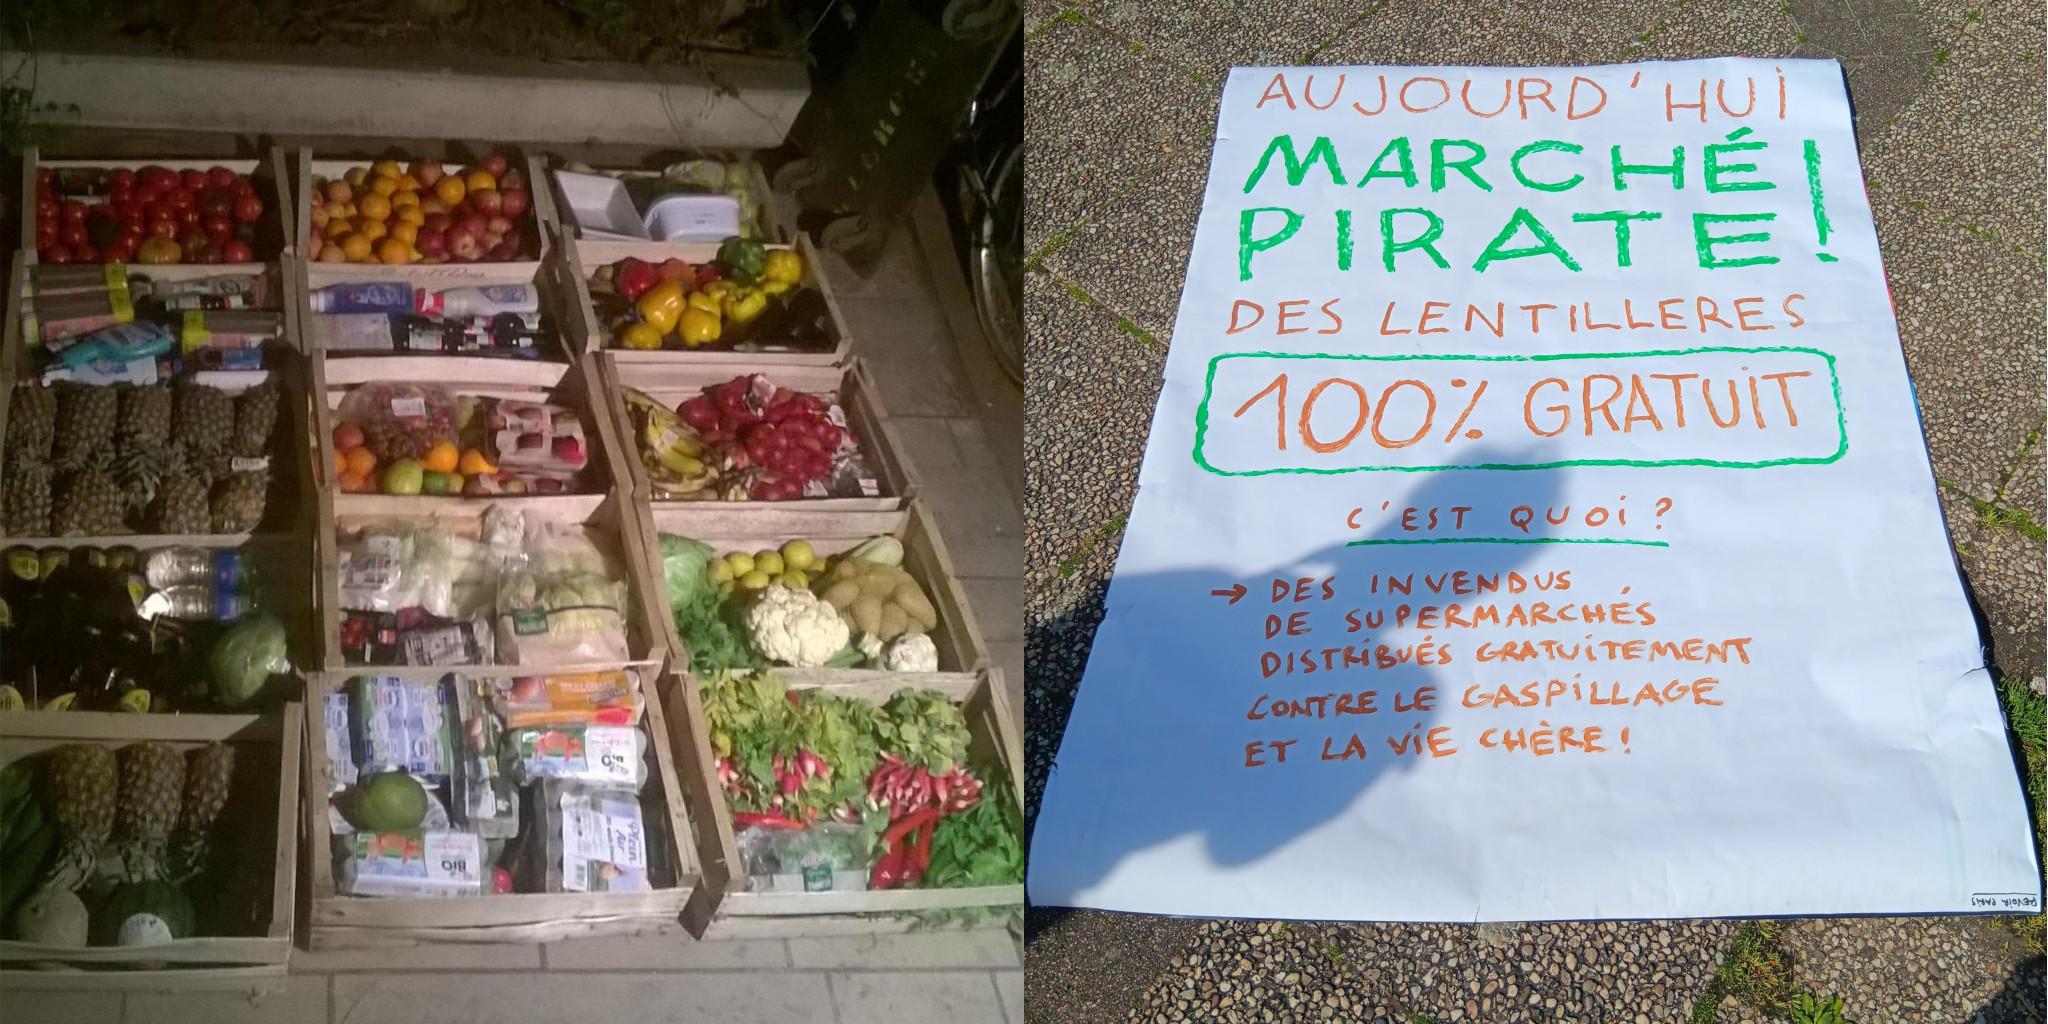 AUJOURD'HUI
MARCHÉ
PIRATE!
DES LENTILLERES
100% GRATUIT
C'EST QUOI?
→ DES INVENDUS
DE SUPERMARCHÉS
DISTRIBUÉS GRATUITEMENT
CONTRE LE GASPILLAGE
ET LA VIE CHÈRE!
REVOIR PARIS
BIO
BIO